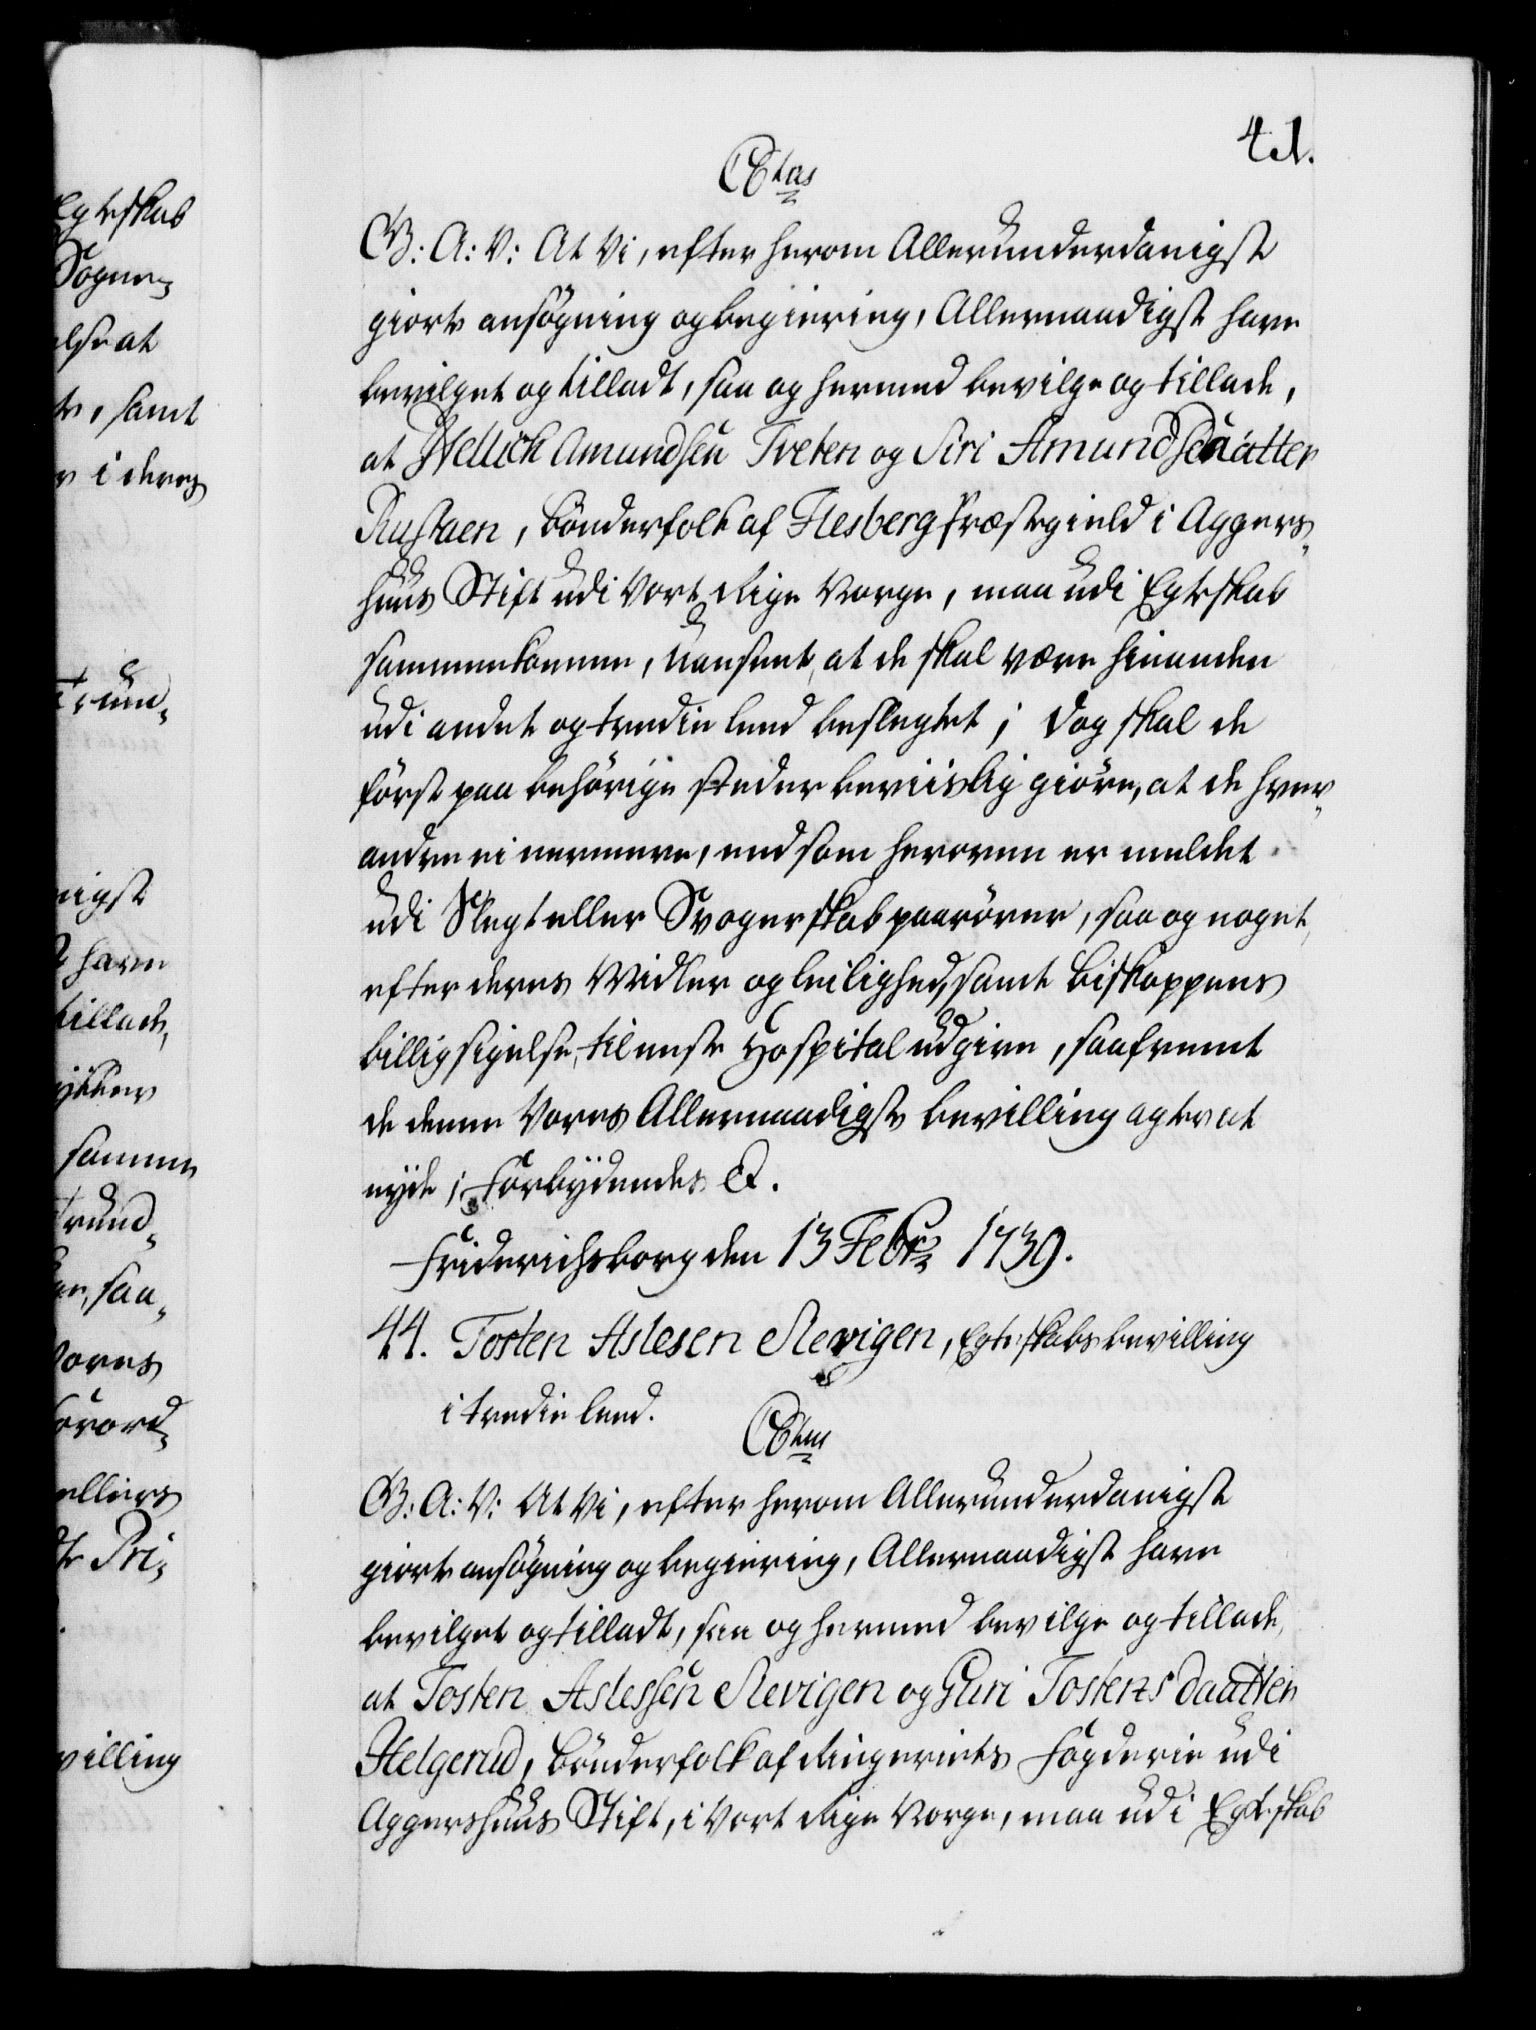 41.
C6tus
G: A: V: At Vi, efter herom Allerunderdanigst
giorte ansøgning og begiering, Allernaadigst have
bevilget og tilladt, saa og hermed bevilge og tillade,
at Hellick Amundsen Tveten og Siri Amundsdatter
Rustaen, bønderfolk af Flesberg Præstegield i Aggers-
huus Stift udi Vort Rige Norge, maa udi Egteskab
sammenkomme, uanseet, at de skal være hinanden
udi andet og tredie leed beslegtet; dog skal de
først paa behørige steder beviislig giøre, at de hver-
andre ei nermere, end som herovven er meldet
udi Slegt eller Svogerskab paarører, saa og noget,
efter deres Midler og leilighed, samt Biskoppens
billig sigelse, til neste Hospital udgive, saafremt
de denne Vores Allernaadigste bevilling agter at
nyde; Forbydendes &.
Friderichsborg den 13 Febr 1739.
44. Tosten Aslesen Revigen, Egteskabs bevilling
i tredie leed.
C6tus
G: A: V: At Vi, efter herom Allerunderdanigst
giorte ansøgning og begiering, Allernaadigst have
bevilget og tilladt, saa og hermed bevilge og tillade,
at Tosten Aslessen Revigen og Guri Tostensdaatter
Helgerud, bønderfolk af Ringeriets Fogderie udi
Aggershuus Stift, i Vort Rige Norge, maa udi Egteskab
Egteskab
Sogne-
else at
te, samt
r i deres
Trund-
nigst
t have
tillade,
ykker
samme
Trund-
saa-
Vores
orord-
ellers
te Pri-
villing